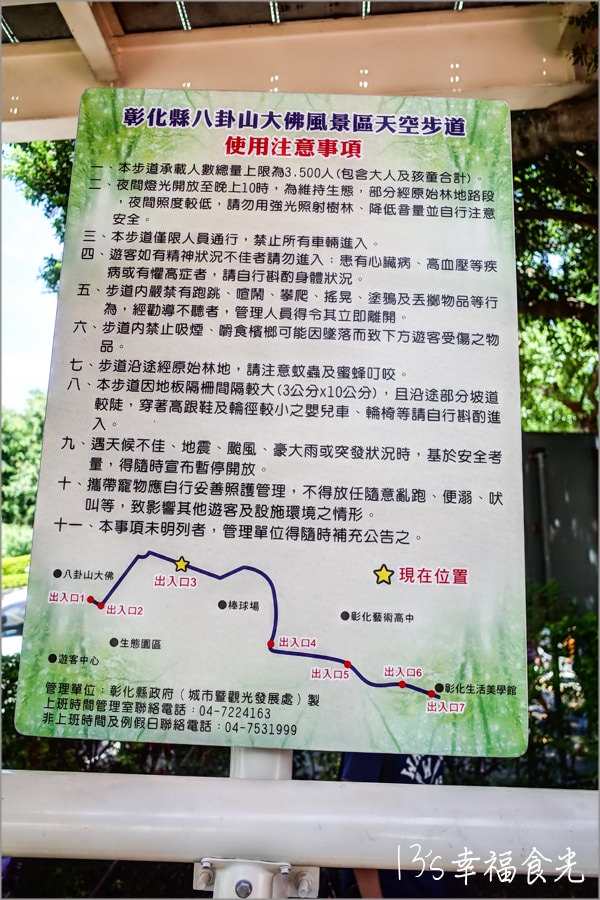 彰化縣八卦山大佛風景區天空步道
使用注意事項
一、本步道承載人數總量上限為3.500人(包含大人及孩童合計)。
二、夜間燈光開放至晚上10時，為維持生態，部分經原始林地路段
，夜間照度較低，請勿用強光照射樹林、降低音量並自行注意
安全。
三、本步道僅限人員通行，禁止所有車輛進入。
四、遊客如有精神狀況不佳者請勿進入；患有心臟病、高血壓等疾
病或有懼高症者，請自行斟酌身體狀況。
五、步道內嚴禁有跑跳、喧鬧、攀爬、搖晃、塗鴉及丟擲物品等行
為，經勸導不聽者，管理人員得令其立即離開。
六、步道內禁止吸煙、嚼食檳榔可能因墜落而致下方遊客受傷之物
品。
七、步道沿途經原始林地，請注意蚊蟲及蜜蜂叮咬。
八、本步道因地板隔柵間隔較大(3公分x10公分)，且沿途部分坡道
較陡，穿著高跟鞋及輪徑較小之嬰兒車、輪椅等請自行斟酌進
入。
九、遇天候不佳、地震、颱風、豪大雨或突發狀況時，基於安全考
量，得隨時宣布暫停開放。
十、攜帶寵物應自行妥善照護管理，不得放任隨意亂跑、便溺、吠
叫等，致影響其他遊客及設施環境之情形。
十一、本事項未明列者，管理單位得隨時補充公告之。
八卦山大佛
出入口3
現在位置
出入口1
出入口2
棒球場
彰化藝術高中
生態園區
出入口4
遊客中心
出入口5
出入口6
彰化生活美學館
出入口7
管理單位：彰化縣政府（城市暨觀光發展處）製
上班時間管理室聯絡電話：04-7224163
非上班時間及例假日聯絡電話：04-7531999
13's幸福食光